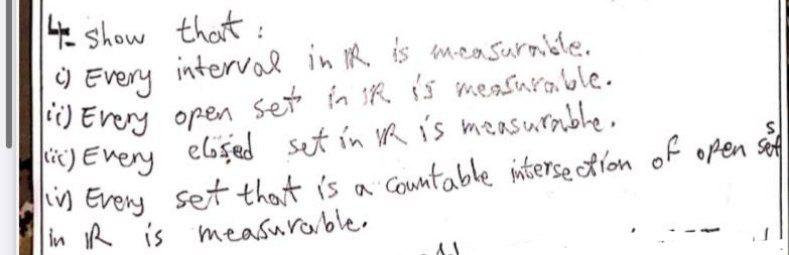 4. Show that:
i) Every interval in ℝ is measurable.
ii) Every open set in ℝ is measurable.
iii) Every closed set in ℝ is measurable.
iv) Every set that is a countable intersection of open sets
in ℝ is measurable.